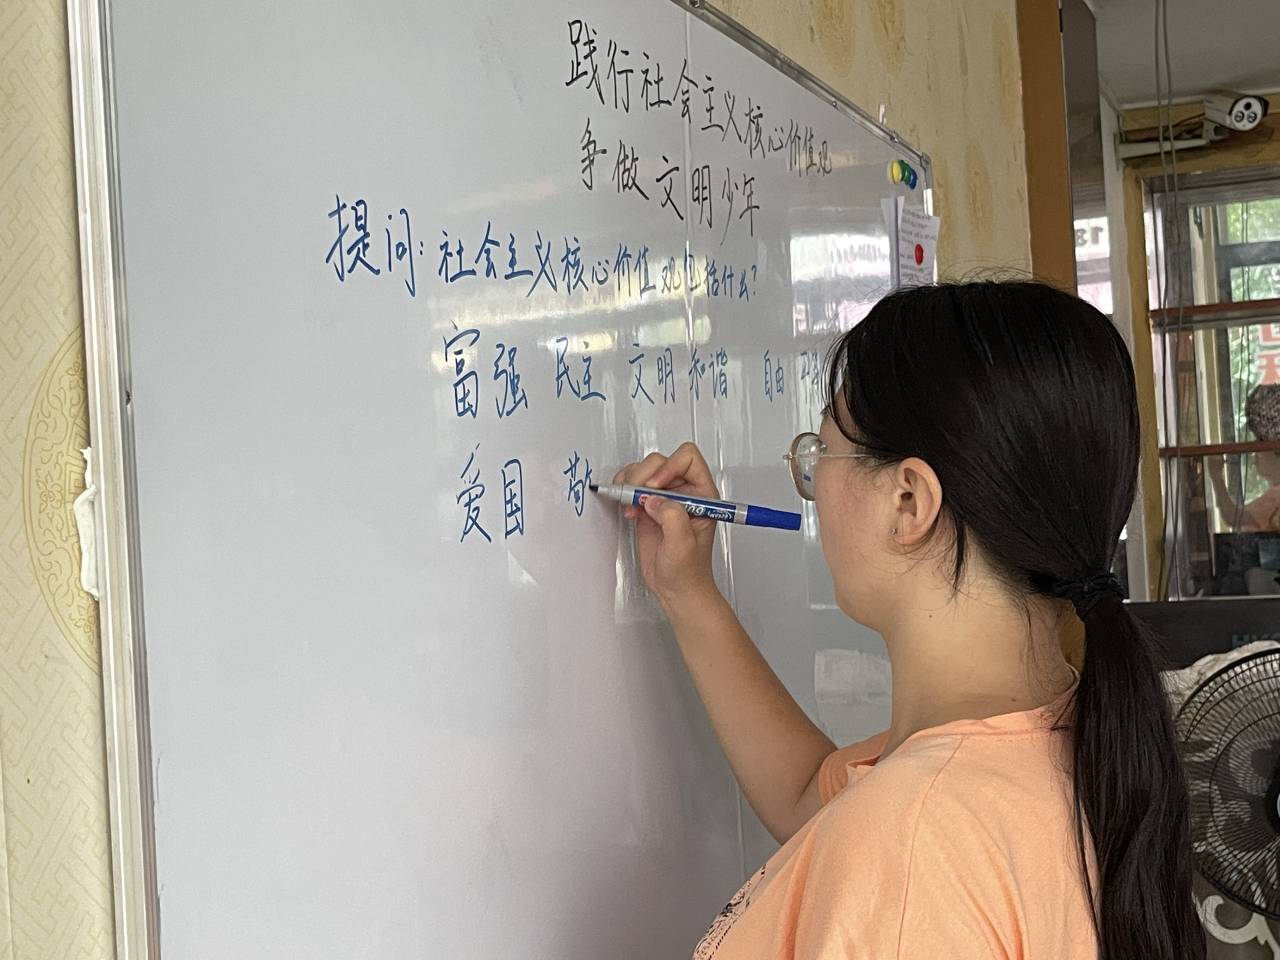 践行社会主义核心价值观
争做文明少年
提问：社会主义核心价值观包括什么？
富强 民主 文明 和谐 自由 平等
爱国